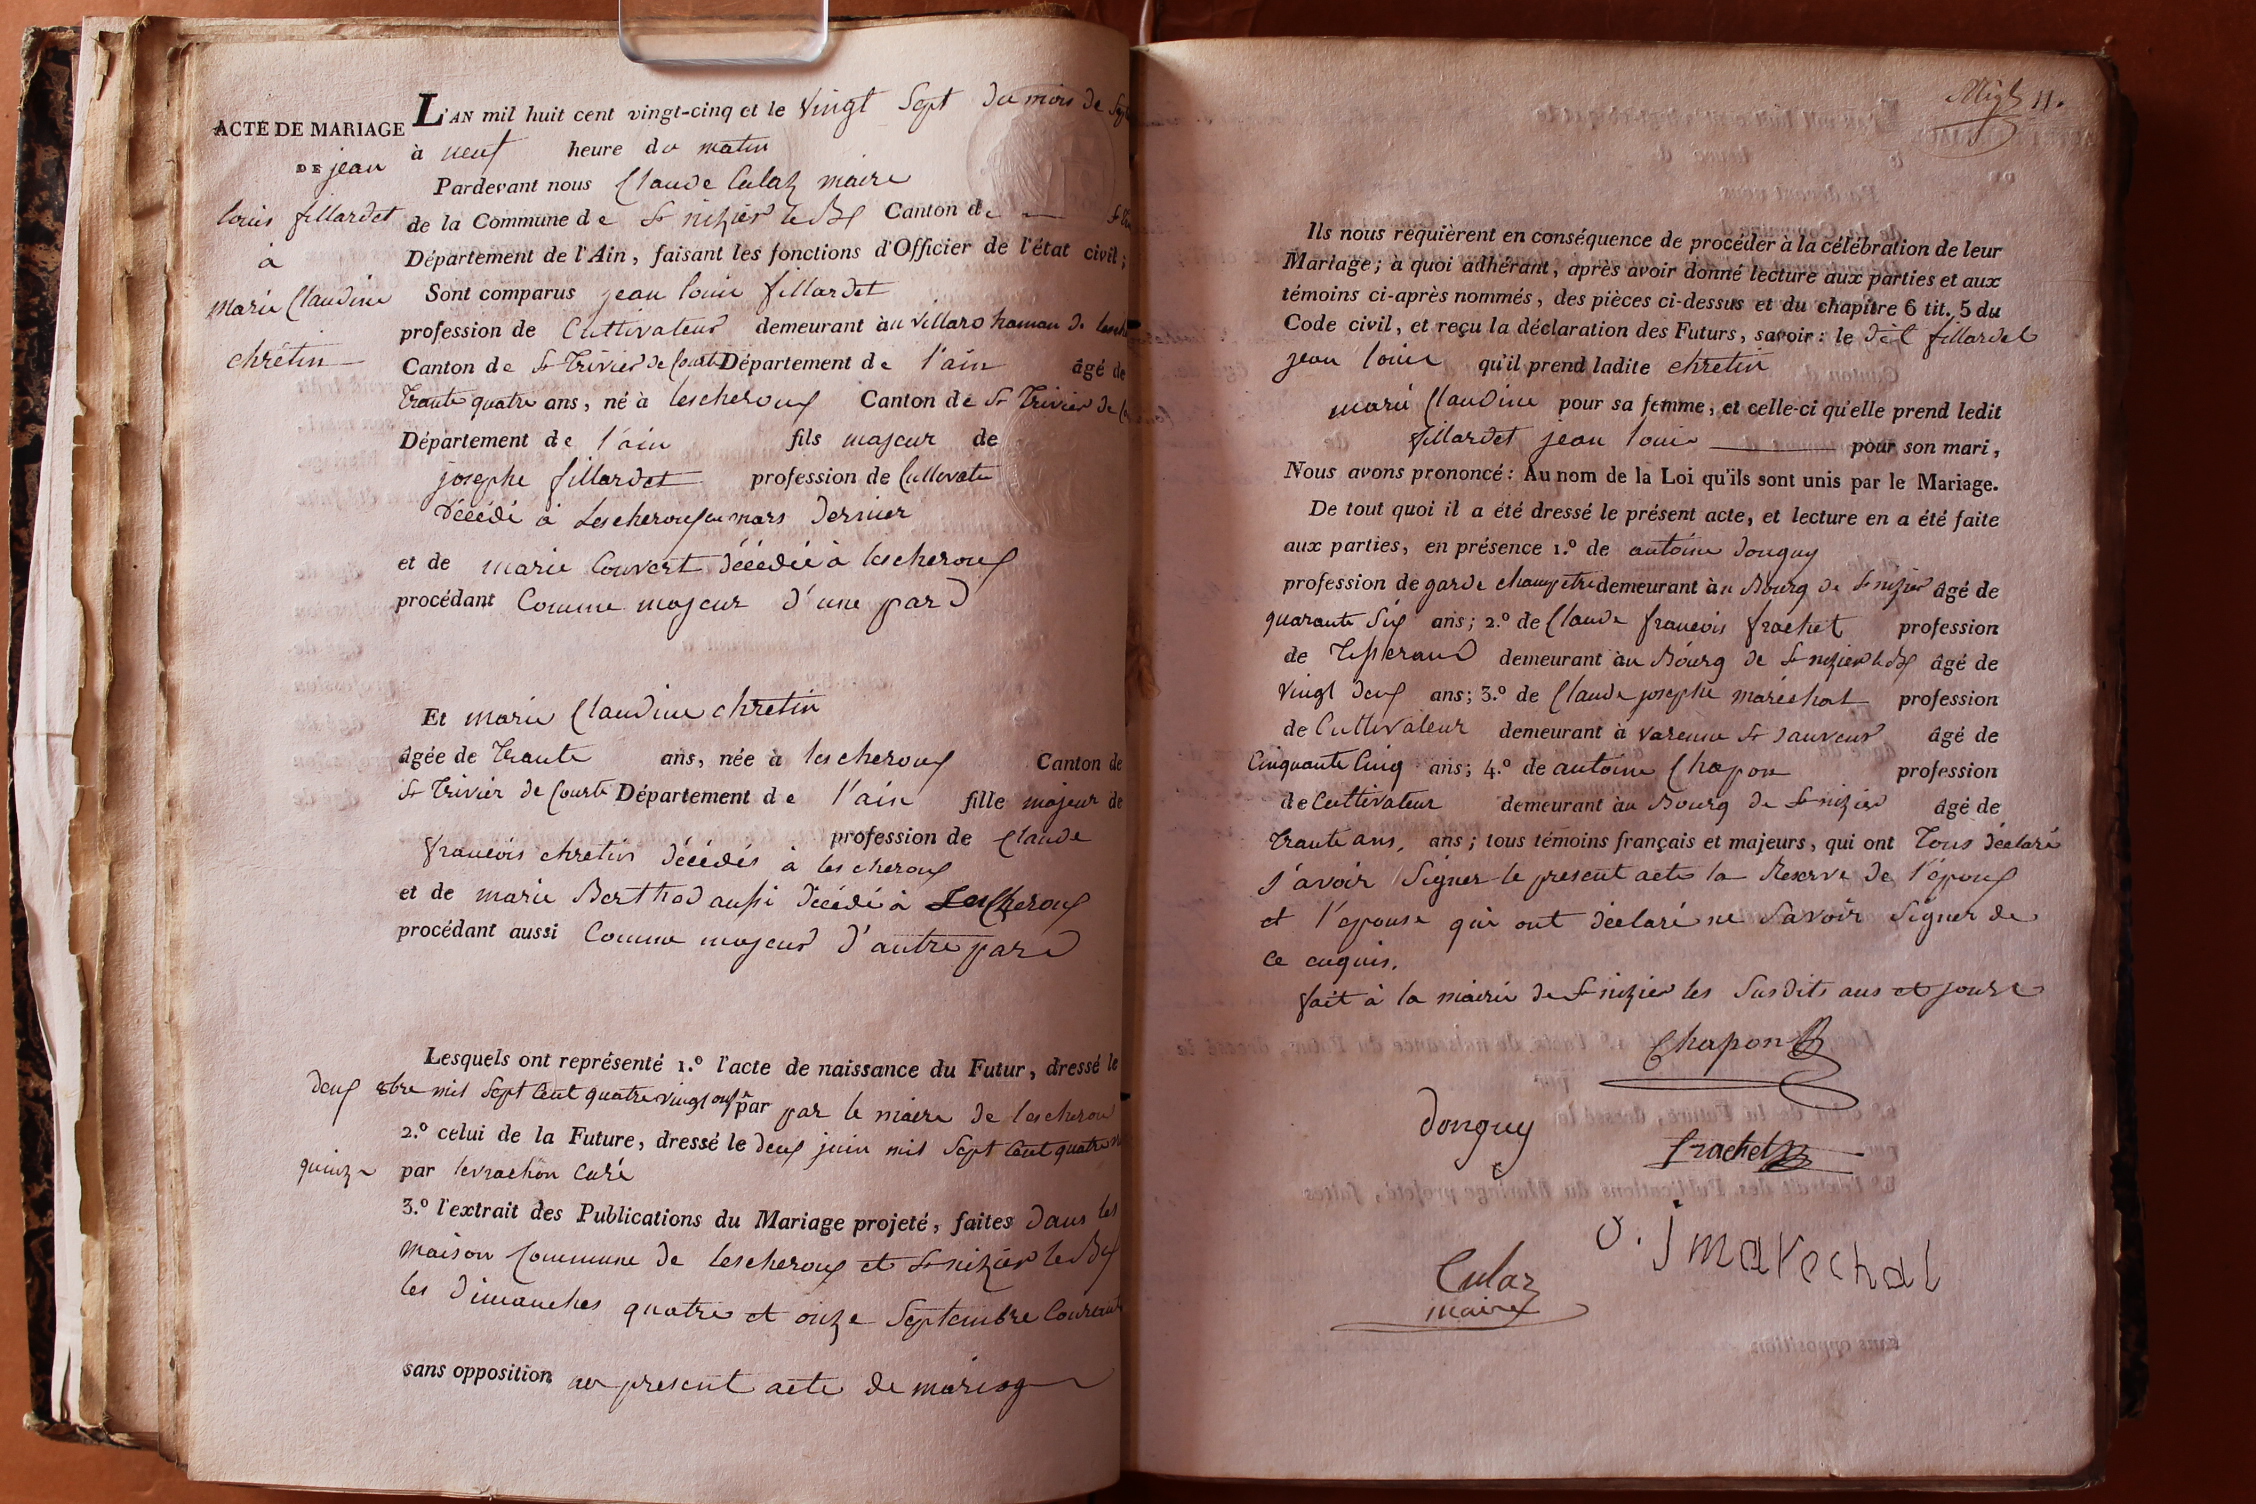 ACTE DE MARIAGE
DE jean
louis fillardet
à
marie Claudine
chrétin
L'AN mil huit cent vingt-cinq et le vingt Sept du mois de
à neuf heure du matin
Pardevant nous Claude Culaz maire
de la Commune de St nizier le Bx Canton de
Département de l'Ain, faisant les fonctions d'Officier de l'état civil;
Sont comparus jean louis fillardet
profession de Cultivateur demeurant au villard hamau de
Canton de St Trivier de Courte Département de l'ain âgé de
trante quatre ans, né à lescheroux Canton de St Trivier de
Département de l'ain fils majeur de
josephe fillardet profession de Cultivateu
Décédé à Lescheroux en mars dernier
et de marie Couvert décédée à lescheroux
procédant Comme majeur d'une pard
Et marie Claudine chretin
âgée de trante ans, née à lescheroux Canton de
St Trivier de Courte Département de l'ain fille majeur de
profession de Claude
francois chretin décédés à lescheroux
et de marie Berthod aussi décédé à Lescheroux
procédant aussi Comme majeur d'autre pard
Lesquels ont représenté 1.º l'acte de naissance du Futur, dressé le
deux 8bre mil Sept Cent quatre vingt onze par par le maire de lescherou
2.º celui de la Future, dressé le deux juin mil Sept Cent quatre
quinze par levrachon Curé
3.º l'extrait des Publications du Mariage projeté, faites dans les
maison Commune de lescheroux et St nizier le Bx
les dimanches quatre et onze Septembre Courant
sans opposition au present acte de mariage
11.
Ils nous requièrent en conséquence de procéder à la célébration de leur
Mariage; à quoi adhérant, après avoir donné lecture aux parties et aux
témoins ci-après nommés, des pièces ci-dessus et du chapitre 6 tit. 5 du
Code civil, et reçu la déclaration des Futurs, savoir: le dit fillardet
jean louis qu'il prend ladite chretin
marie Claudine pour sa femme, et celle-ci qu'elle prend ledit
fillardet jean louis pour son mari,
Nous avons prononcé: Au nom de la Loi qu'ils sont unis par le Mariage.
De tout quoi il a été dressé le présent acte, et lecture en a été faite
aux parties, en présence 1.º de antoine donguy
profession de garde champetre demeurant au Bourg de St nizier âgé de
quarante Six ans; 2.º de Claude francois frachet profession
de Tisserand demeurant au Bourg de St nizier le Bx âgé de
vingt deux ans; 3.º de Claude josephe maréchal profession
de Cultivateur demeurant à varenne St Sauveur âgé de
Cinquante Cinq ans; 4.º de antoine Chapon profession
de Cultivateur demeurant au Bourg de St nizier âgé de
trante ans, ans; tous témoins français et majeurs, qui ont Tous déclaré
s'avoir Signer le present acte la Reserve de l'epoux
et l'epouse qui ont déclaré ne Savoir Signer de
ce enquis.
fait à la mairie de St nizier les Susdits ans et jours
Chapon
donguy
frachet
o. j marechal
Culaz
maire